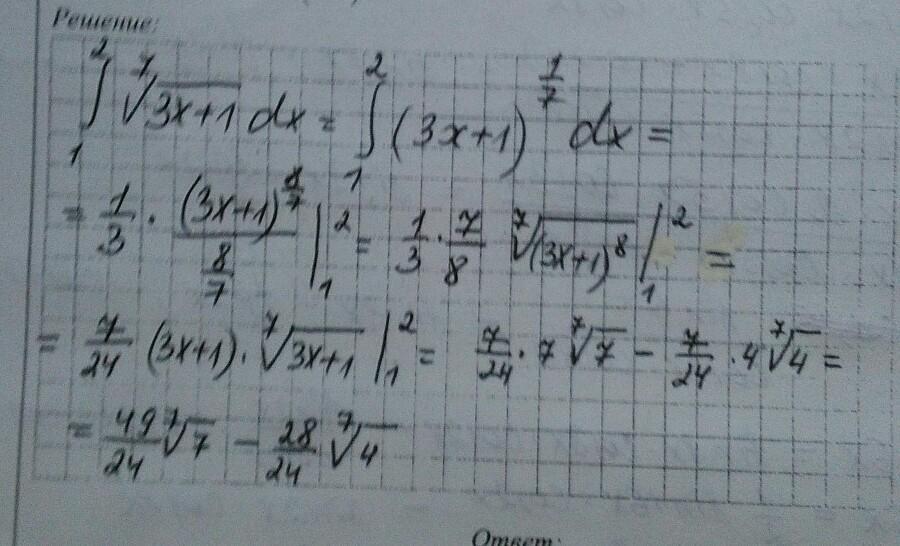 Решение:
∫₁² ⁷√(3x+1) dx = ∫₁² (3x+1)^(1/7) dx =
= 1/3 · (3x+1)^(8/7) / (8/7) |₁² = 1/3 · 7/8 ⁷√((3x+1)⁸) |₁² =
= 7/24 (3x+1) · ⁷√(3x+1) |₁² = 7/24 · 7 ⁷√7 − 7/24 · 4 ⁷√4 =
= 49/24 ⁷√7 − 28/24 ⁷√4
Ответ: